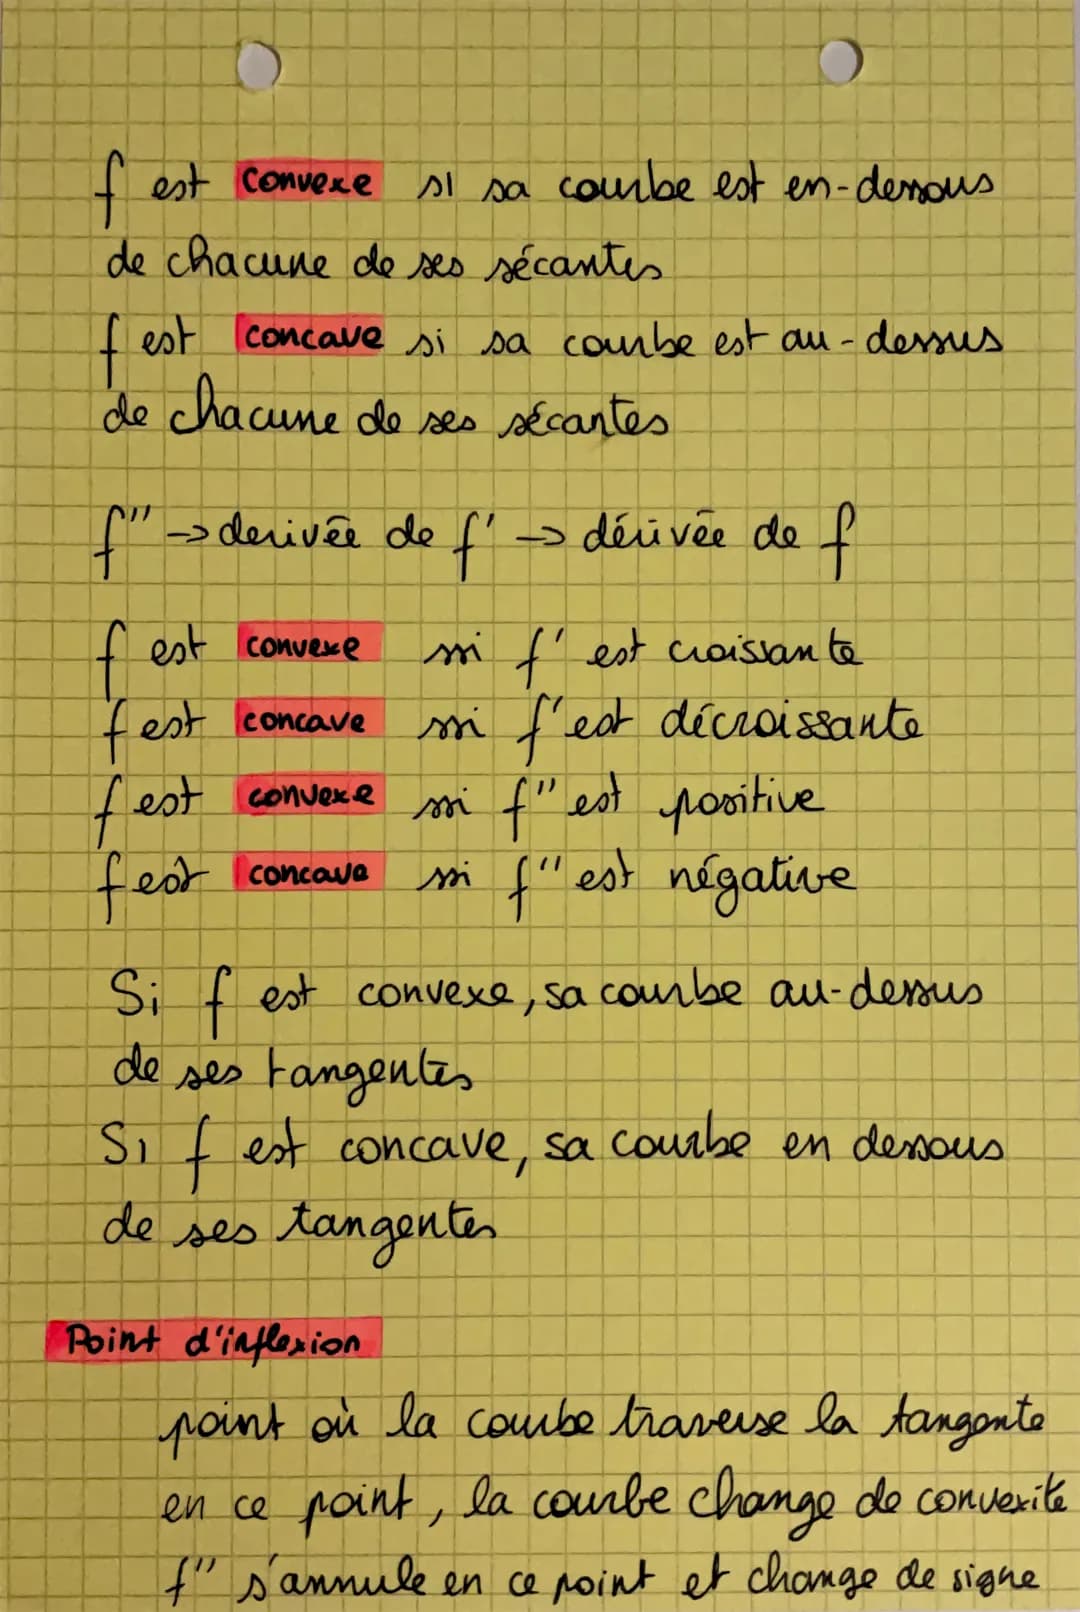 f est convexe si sa courbe est en-dessous
de chacune de ses sécantes
f est concave si sa courbe est au-dessus
de chacune de ses sécantes
f'' → derivée de f' → dérivée de f
f est convexe ssi f' est croissante
f est concave ssi f' est décroissante
f est convexe ssi f'' est positive
f est concave ssi f'' est négative
Si f est convexe, sa courbe au-dessus
de ses tangentes
Si f est concave, sa courbe en dessous
de ses tangentes
Point d'inflexion
point où la courbe traverse la tangente
en ce point, la courbe change de convexite
f'' s'annule en ce point et change de signe